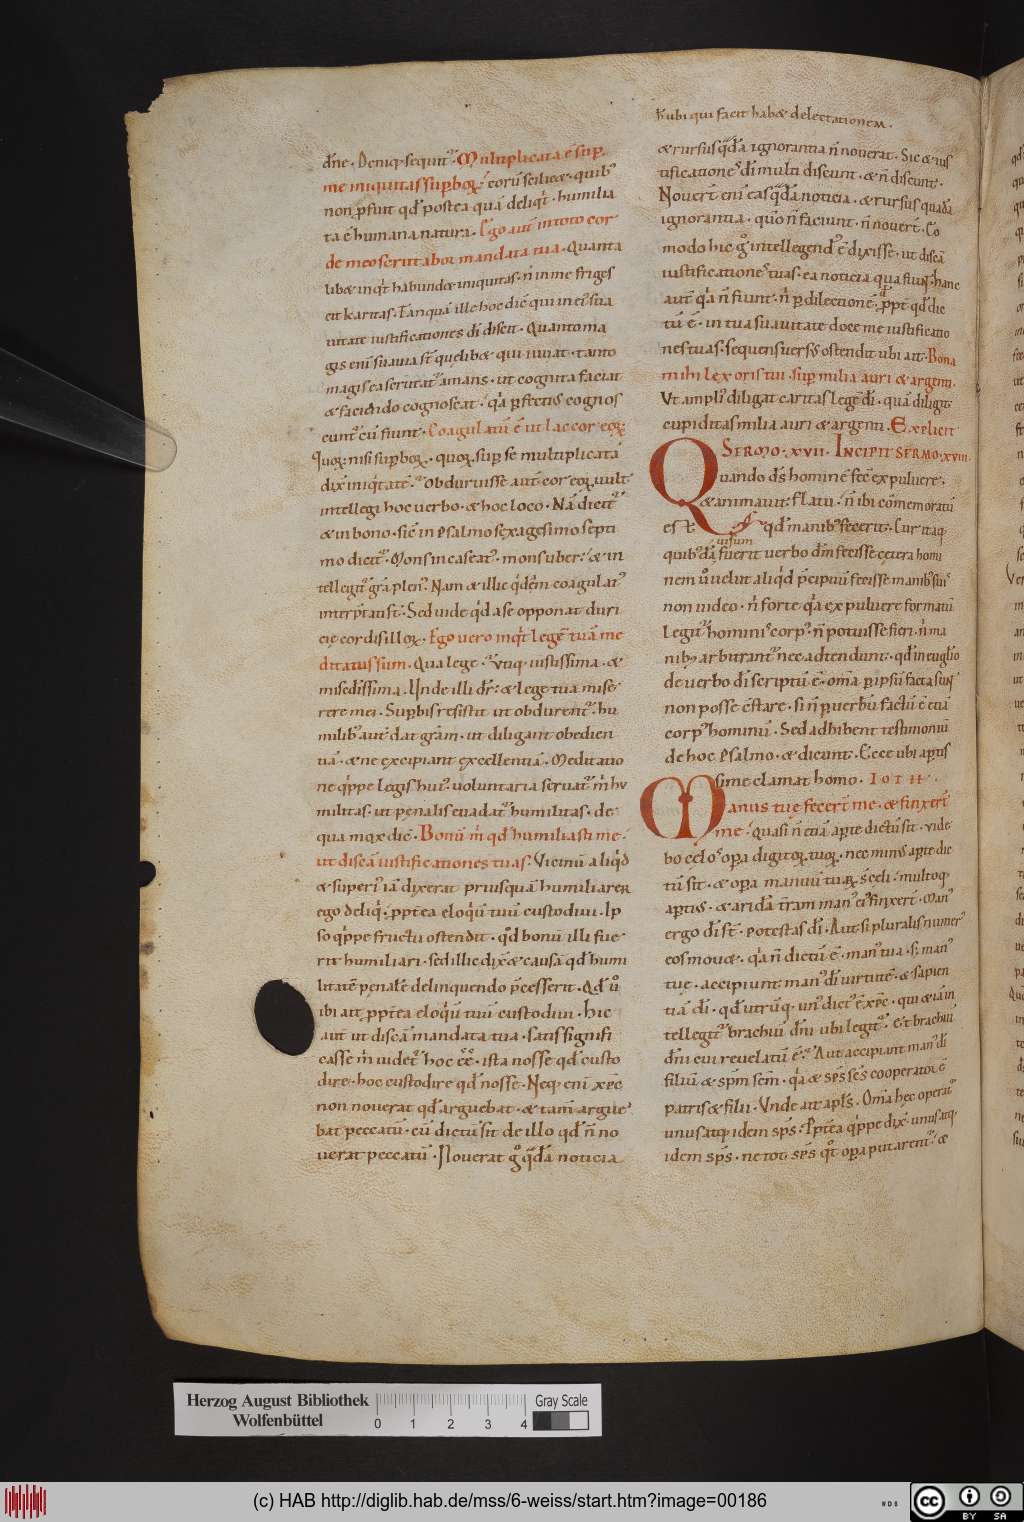 dñe. Deniq; sequit᷑. Multiplicata ē sup
me iniquitas superboꝝ. eorū scilicet. quib;
non ꝓfuit qđ postea quā deliqͥt. humilia
ta ē humana natura. Ego aut in toto cor
de meo scrutabor mandata tua. Quanta
libet inqͥt habundet iniquitas. ñ in me friges
cit karitas. Tanquā ille hoc dic̄ qui in ei; sua
uitate iustificationes dī discit. Quanto ma
gis eni suauia st̄ quęlibet qui iuuat. tanto
magis ea scrutat᷑ amans. ut cognita faciat
& faciendo cognoscat. qͥa ꝑfectius cognos
cunt᷑ cū fiunt. Coagulatū ē ut lac cor eoꝝ.
Quoꝝ: nisi superboꝝ. quoꝝ. sup se multiplicatā
dix̄ iniqͥtatē. Obduruisse aut cor eoꝝ uult
intellegi hoc uerbo. & hoc loco. Nā dicit᷑
& in bono. sic̄ in psalmo sexagesimo septi
mo dicit᷑. Mons incaseat;. mons uber: & in
tellegit᷑ grā plen;. Nam & illic qͥdem coagulat;
interp̄tati st̄. Sed uide qͥd a se opponat duri
cię cordis illoꝝ. Ego uero inqͥt legē tuā me
ditatus sum. Qua lege. Vtiq; iustissima. &
misedissima. Unde illi dr̄: & lege tua mise
rere mei. Supbis resistit ut obdurent᷑. hu
milib; aut dat grām. ut diligant obedien
tiā. & ne excipiant excellentiā. Meditatio
ne qͥppe legis hui; uoluntaria seruat᷑ m̄ hu
militas. ut penalis euadat᷑ humilitas. de
qua mox dic̄. Bonū m̄ qđ humiliasti me.
ut discā iustificationes tuas. Vicinū aliqͥd
& superi; iā dixerat priusquā humiliarer
ego deliqͥ. ꝓptea eloqͥū tuū custodiui. Ip
so qͥppe fructu ostendit. qđ bonū illi fue
rit humiliari. sed illic dix̄ & causā qđ humi
litatē penalē delinquendo p̄cesserit. Qđ ů
ibi ait ꝓptea eloqͥū tuū custodiui. hic
aut ut discā mandata tua. satis signifi
casse m̄ uidet᷑ hoc ēē. ista nosse qđ custo
dire. hoc custodire qđ nosse. Neq; eni xpc
non nouerat qđ arguebat. & tam̄ argue
bat peccatū. cū dictū sit de illo qđ ñ no
uerat peccatū. Nouerat g̊ qͣdā noticia
Rubi qui facit habet delectationem.
& rursus qͣdā ignorantia ñ nouerat. Sic & ius
tificationes dī multi discunt. & ñ discunt.
Nouert̄ eni eas qͣdā noticia. & rursus quadā
ignorantia. quō ñ faciunt. ñ nouert̄. Eo
modo hic g̊ intellegend; ē dixisse. ut discā
iustificationes tuas. ea noticia qua fiunt. hanc
aut qͥa ñ fiunt. ñ ꝑ dilectionē. ꝓpt qđ dic
tū ē. in tua suauitate doce me iustificatio
nes tuas. sequens uersus ostendit ubi ait. Bona
mihi lex oris tui. sup milia auri & argenti.
Vt ampli; diligat caritas legē dī. quā diligit
cupiditas milia auri & argenti. Explicit
Sermo. xvii. Incipit sermo. xviii.
Quando ds̄ hominē fec̄ ex puluere.
& animauit flatu. ñ ibi cōmemoratū
est qđ manib; fecerit. Cur itaq;
uisum
quib;dā fuerit uerbo dm̄ fecisse cetera homi
nem ů uelut aliqͥd p̄cipuū fecisse manib; suis
non uideo. ñ forte qͥa ex puluere formatū
legit᷑ hominis corp;. ñ potuisse fieri. ñ ma
nib; arbitrant᷑ nec adtendunt. qđ in euglio
de uerbo dī scriptū ē. om̄a ꝑ ipsū facta sunt
non posse cstare. si ñ ꝑ uerbū factū ē etiā
corp; hominū. Sed adhibent testimoniū
de hoc psalmo. & dicunt. Ecce ubi aptis
sime clamat homo. IOTH.
Manus tuę fecert̄ me. & finxert̄
me. Quasi ñ etiā apte dictū sit. uide
bo celos opa digitoꝝ tuoꝝ. nec min; apte dic
tū sit. & opa manuū tuaꝝ s̄ celi. multoq;
apti;. & aridā terram man; ei; finxert̄. Man;
ergo dī st̄. potestas dī. Aut si pluralis numer;
eos mouet. qͥa ñ dictū ē. man; tua. s; man;
tuę. accipiunt man; dī uirtutē. & sapien
tiā dī. qđ utrūq; un; dict; ē xpc. qui & iā in
tellegit᷑ brachiū dn̄i ubi legit᷑. Et brachiū
dn̄i cui reuelatū ē. Aut accipiant man; dī
filiū & spm scm. qͥa & sps scs cooperator ē
patris & filii. Vnde ait apls. Om̄a hec operat᷑
unus atq; idem sps. Ꝓptea qͥppe dix̄. unus atq;
idem sps. ne tot sps qͦt opa putarent᷑. &
Herzog August Bibliothek
Wolfenbüttel
0 1 2 3 4
Gray Scale
(c) HAB http://diglib.hab.de/mss/6-weiss/start.htm?image=00186
WDB
cc BY SA